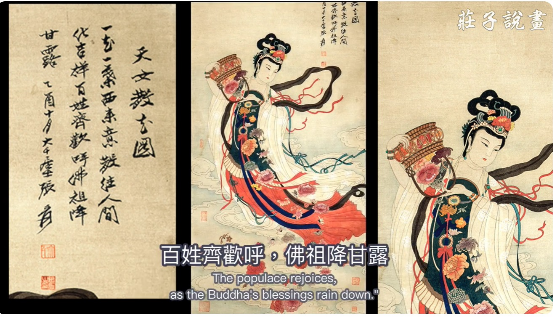 莊子說畫
天女散花圖
一花一葉西來意散往人間
化吉祥百姓齊歡呼佛祖降
甘露 乙酉十月大千張爰
百姓齊歡呼，佛祖降甘露
The populace rejoices,
as the Buddha's blessings rain down."